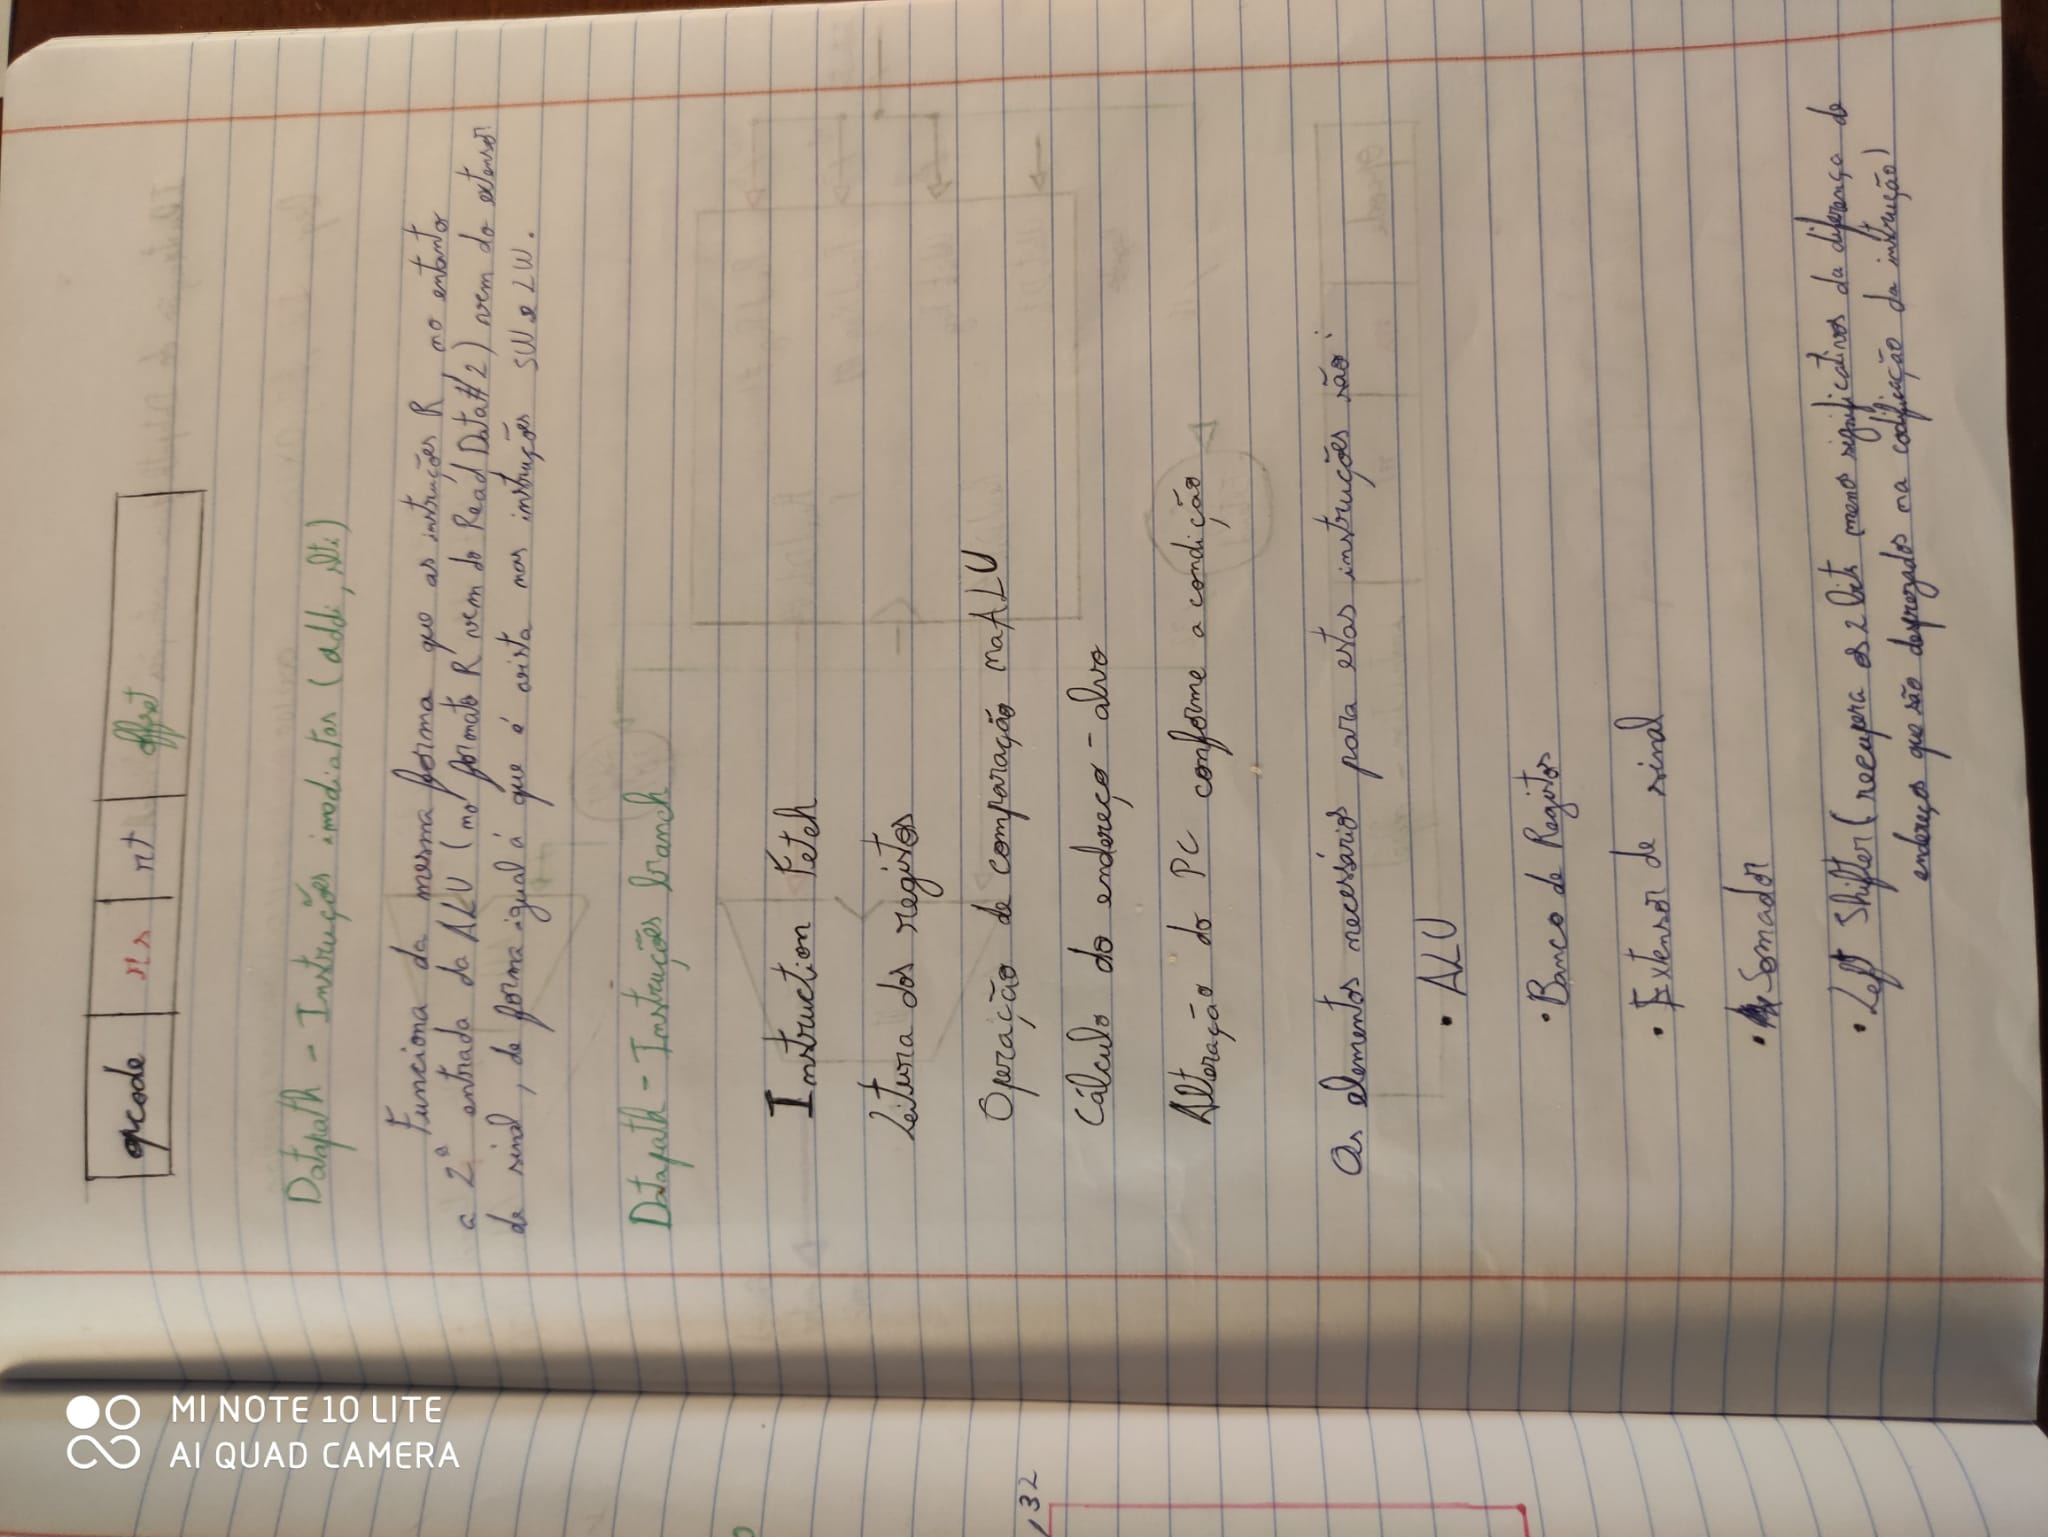 opcode rs rt offset
Datapath - Instruções imediatas (addi, slti)
Funciona da mesma forma que as instruções R, no entanto
a 2ª entrada da ALU (no formato R vem do Read Data #2) vem do extensor
de sinal, de forma igual á que é vista nas instruções SW e LW.
Datapath - Instruções branch
Instruction Fetch
Leitura dos registos
Operação de comparação na ALU
Cálculo do endereço - alvo
Alteração do PC conforme a condição
Os elementos necessários para estas instruções são:
• ALU
• Banco de Registos
• Extensor de sinal
• Somador
• Left Shifter (recupera os 2 bits menos significativos da diferença de
endereços que são desprezados na codificação da instrução)
32
MI NOTE 10 LITE
AI QUAD CAMERA